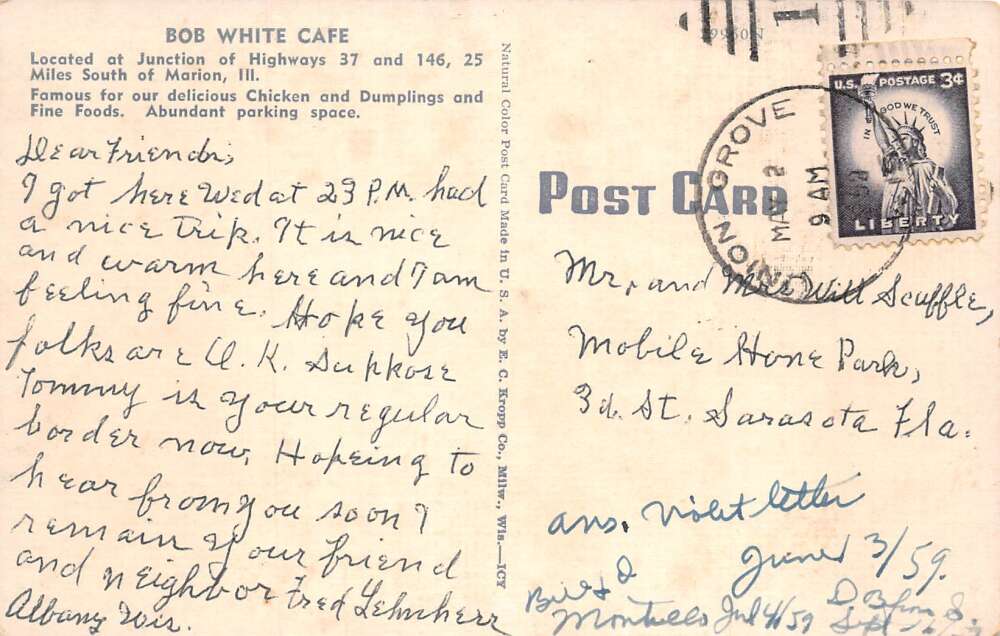 BOB WHITE CAFE
Located at Junction of Highways 37 and 146, 25
Miles South of Marion, Ill.
Famous for our delicious Chicken and Dumplings and
Fine Foods. Abundant parking space.
Dear Friends,
I got here Wed at 23 P.M. had
a nice Trip. It is nice
and warm here and I am
feeling fine. Hope you
folks are O.K. Suppose
Tommy is your regular
border now. Hopeing to
hear from you soon I
remain your friend
and neighbor Fred Lehnherr
Albany Wis.
Natural Color Post Card Made in U. S. A. by E. C. Kropp Co., Milw., Wis.—ICY
POST CARD
UNION GROVE
MAY 2
9 AM
U.S. POSTAGE 3¢
IN GOD WE TRUST
LIBERTY
Mr. and Mrs Will Scuffle,
Mobile Home Park,
3d. St. Sarasota Fla.
ans. Violet letter
June 3/59.
Bill &
Monticello Jul 4/59